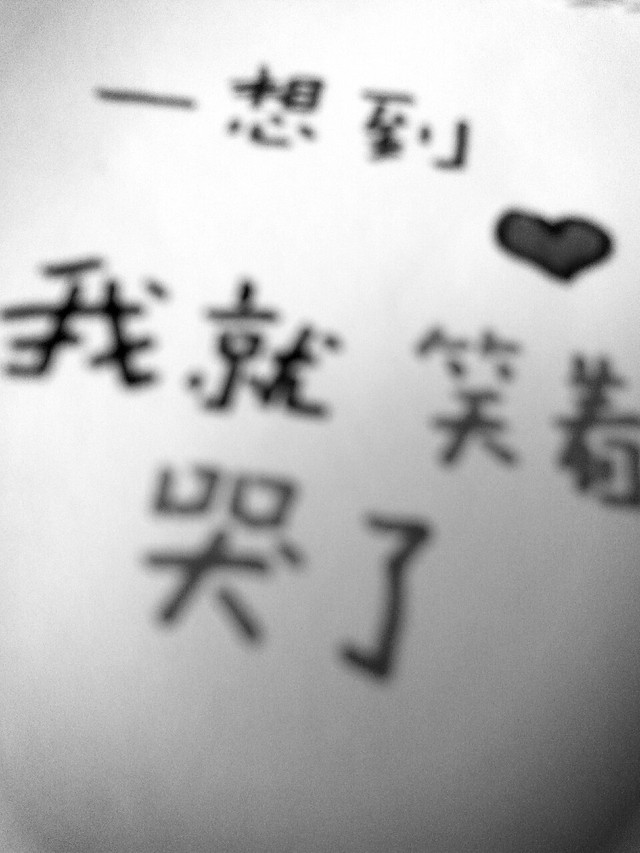 一想到
我就笑着
哭了